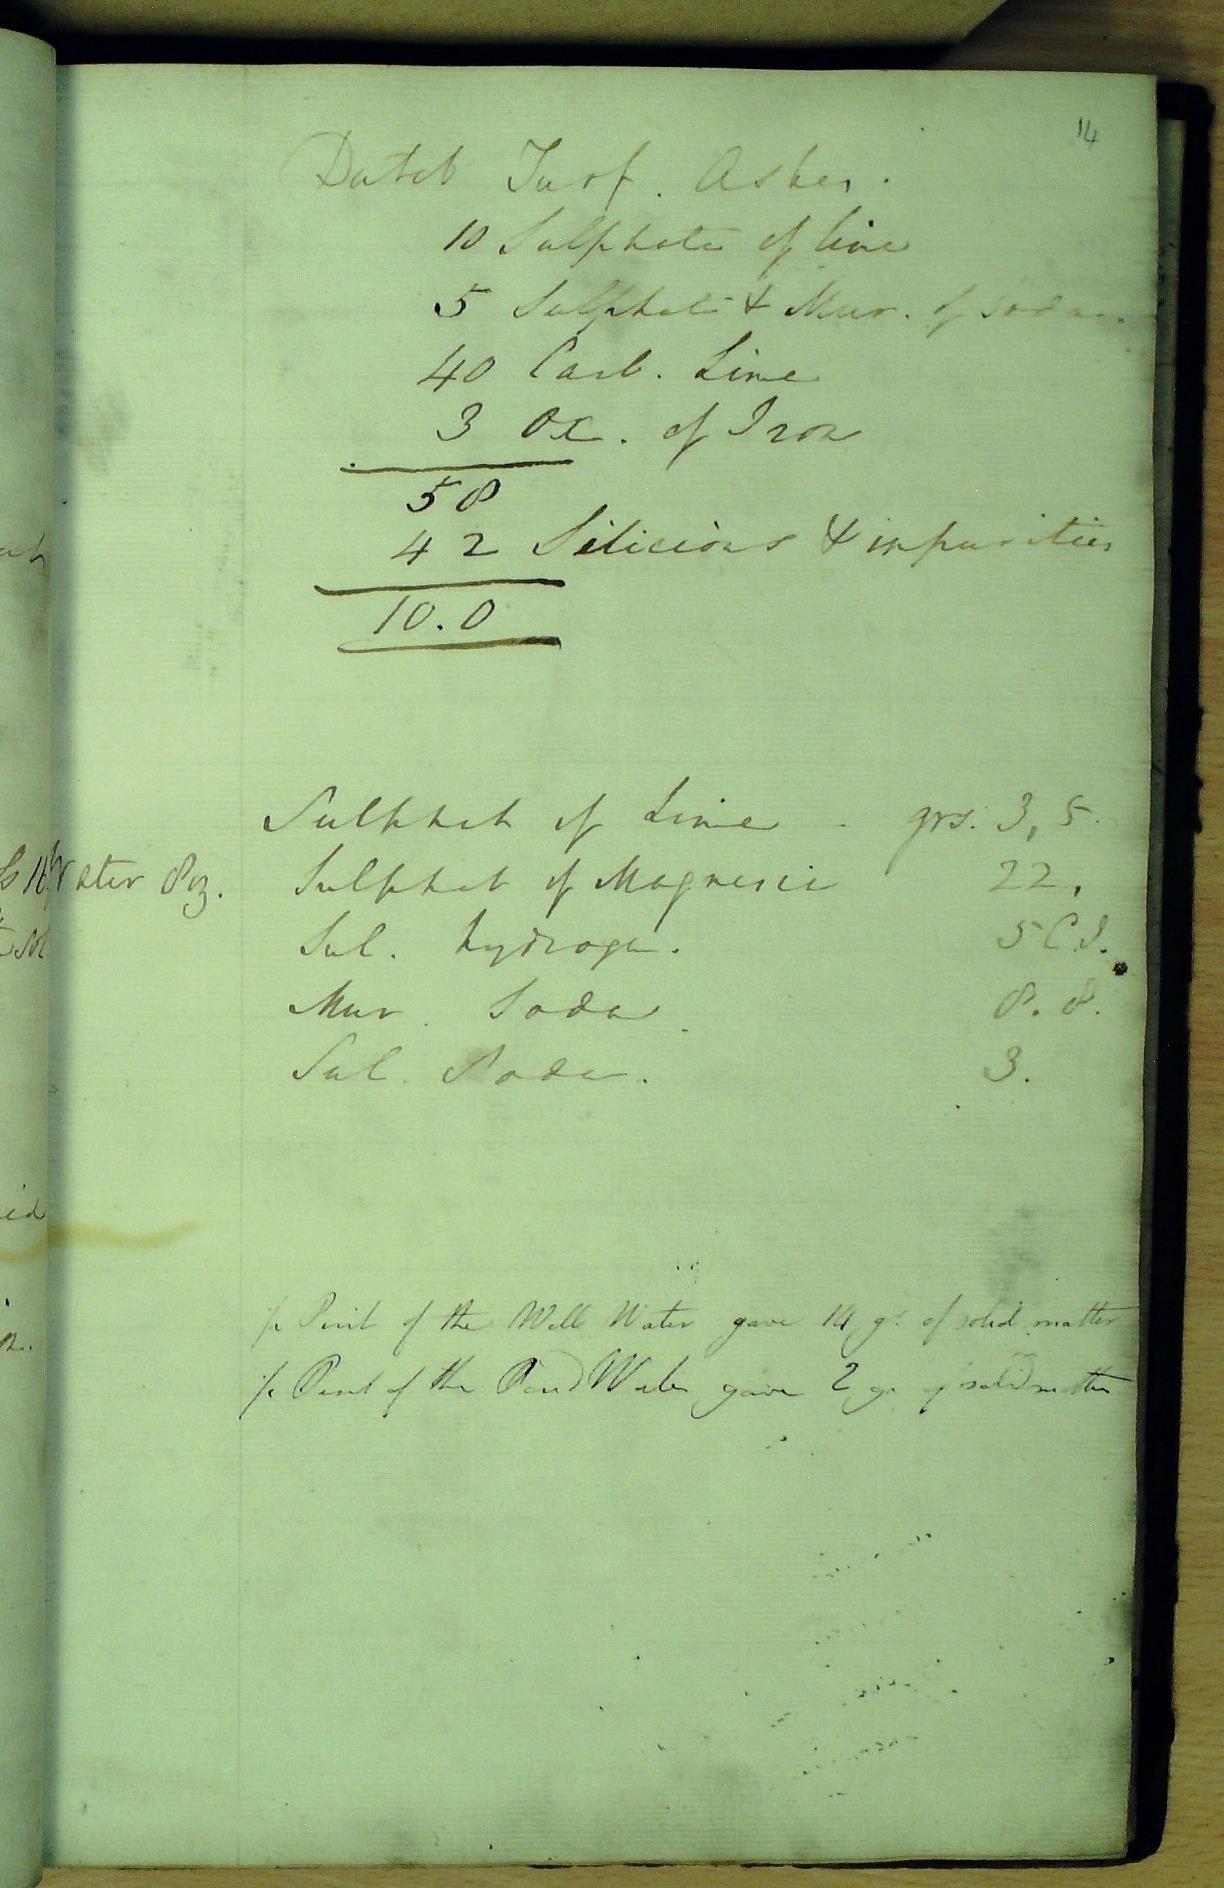 14
Dutch Turf. Ashes.
10 Sulphate of lime
5 Sulphate & Mur. of Soda.
40 Carb. Lime
3 Ox. of Iron
58
42 Silicious & impurities
10.0
Sulphat of Lime - grs. 3,5.
Water 8 oz. Sulphat of Magnesia 22,
Sul. hydrogen. 5 C.I.
Mur. Soda. 8.8.
Sul. Soda. 3.
Pint of the Well Water gave 14 gr. of solid matter
Pint of the Pond Water gave 2 gr of solid matter